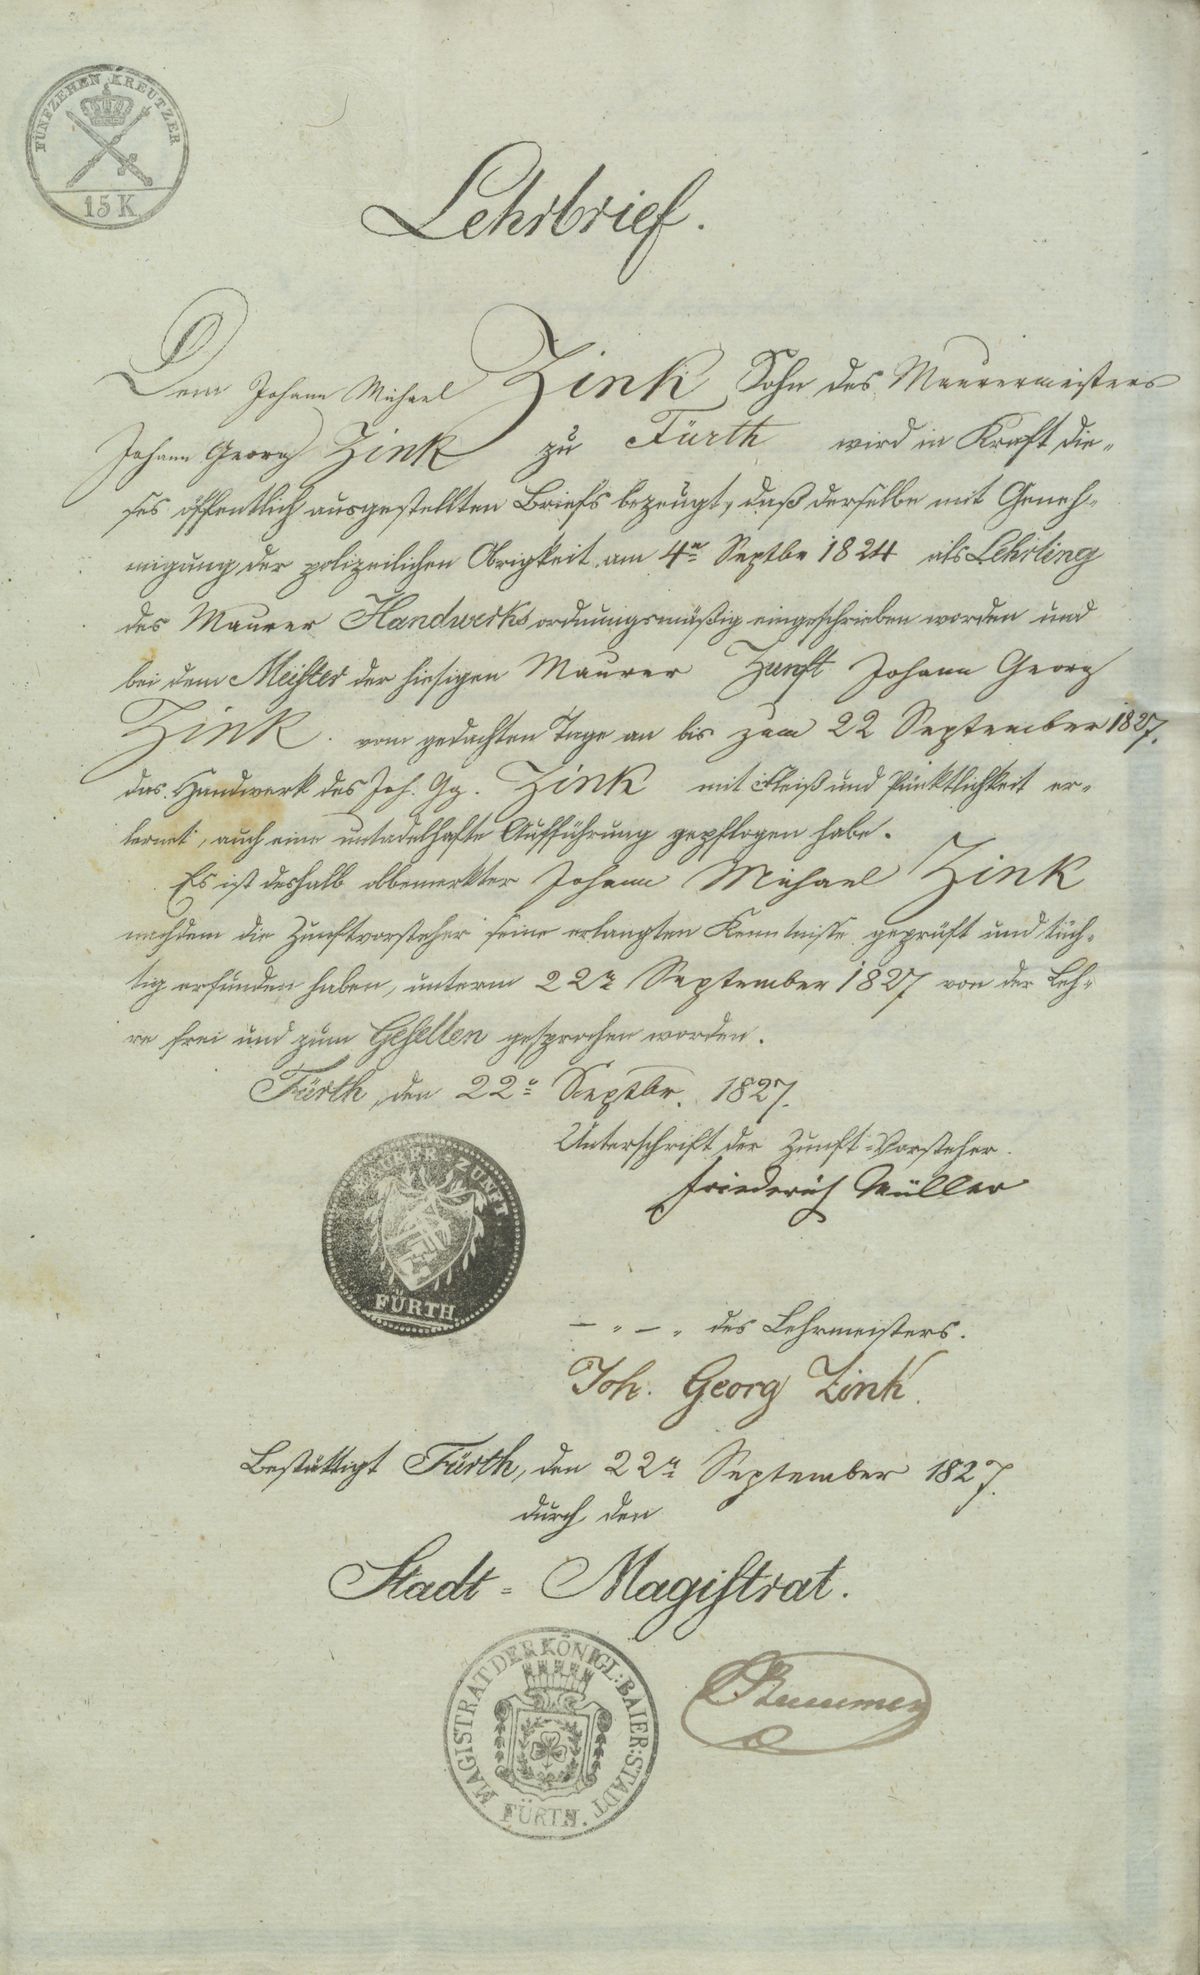 FÜNFZEHEN KREUTZER
15 K
Lehrbrief.
Dem Johann Michael Zink Sohn des Maurermeisters
Johann Georg Zink zu Fürth wird in Kraft die-
ses öffentlich ausgestellten Briefs bezeugt, daß derselbe mit Geneh-
migung der polizeilichen Obrigkeit am 4n Septbr 1824 als Lehrling
des Maurer Handwerks ordnungsmäßig eingeschrieben worden und
bei dem Meister der hiesigen Maurer Zunft Johann Georg
Zink. vom gedachten Tage an bis zum 22 September 1827.
das Handwerk des Joh. Gg. Zink mit Fleiß und Pünktlichkeit er-
lernet, auch eine untadelhafte Aufführung gepflogen habe.
Es ist deshalb obbemerkter Johann Michael Zink
nachdem die Zunftvorsteher seine erlangten Kenntniße geprüft und tüch-
tig erfunden haben, unterm 22n September 1827 von der Leh-
re frei und zum Gesellen gesprochen worden.
Fürth, den 22n Septbr. 1827.
Unterschrift der Zunft-Vorsteher.
Friederich Müller
MAURER ZUNFT
FÜRTH.
— „ — „ des Lehrmeisters.
Joh. Georg Zink.
Bestättigt Fürth, den 22n September 1827.
durch den
Stadt-Magistrat.
MAGISTRAT DER KÖNIGL: BAIER: STADT
FÜRTH.